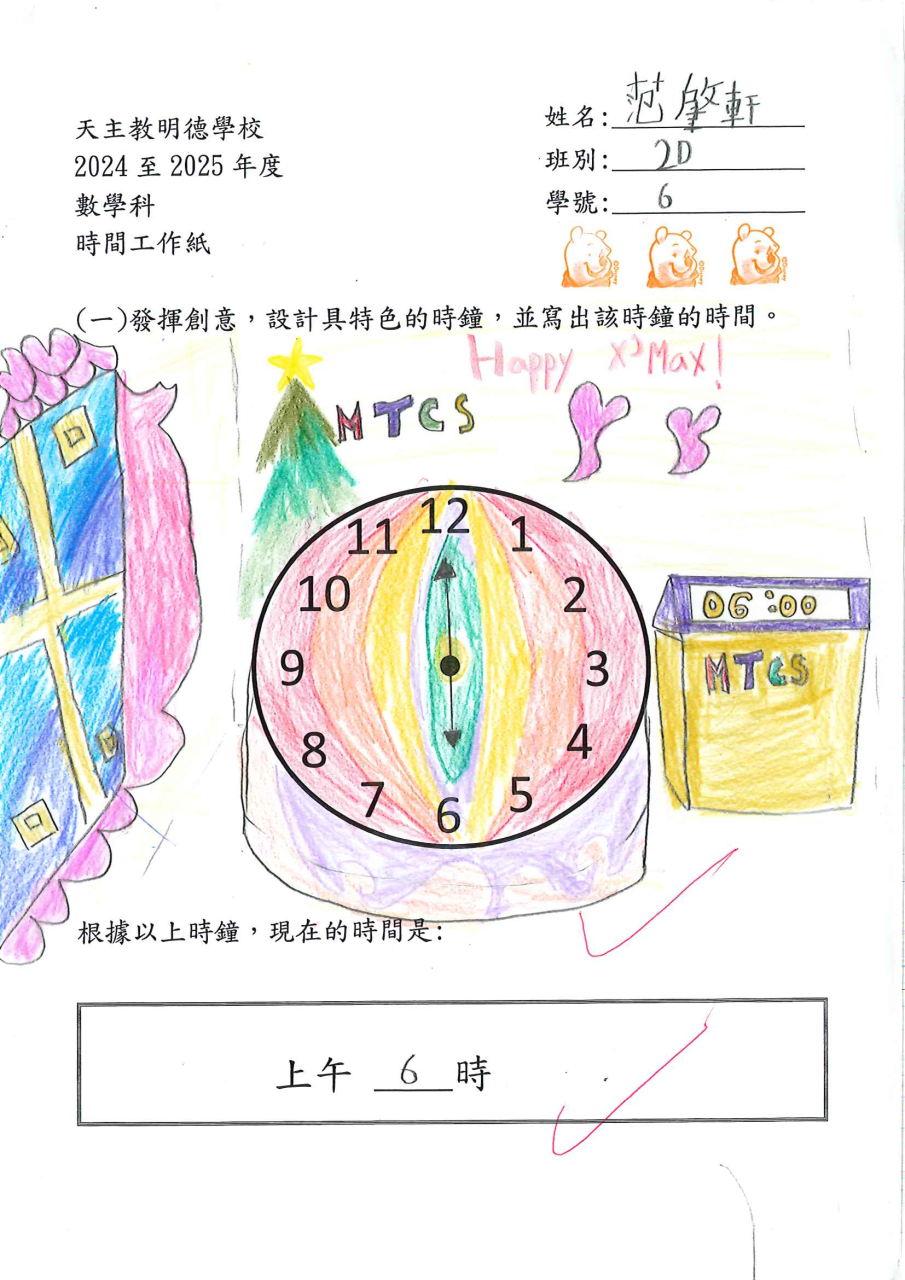 天主教明德學校
2024 至 2025 年度
數學科
時間工作紙
姓名: 范肇軒
班別: 2D
學號: 6
(一)發揮創意，設計具特色的時鐘，並寫出該時鐘的時間。
Happy X'Max!
MTCS
12
11
1
10
2
9
3
8
4
7
5
6
06:00
MTCS
根據以上時鐘，現在的時間是:
上午 6 時